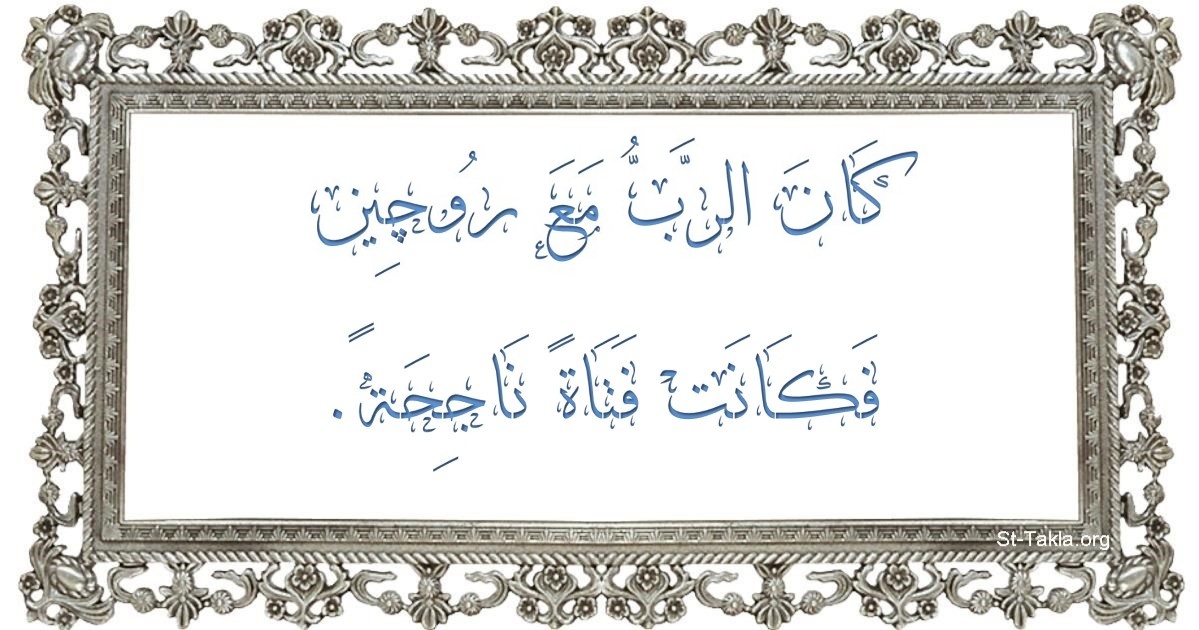 كَانَ الرَّبُّ مَعَ رُوچِين
فَكَانَتْ فَتَاةً نَاجِحَةً.
St-Takla.org